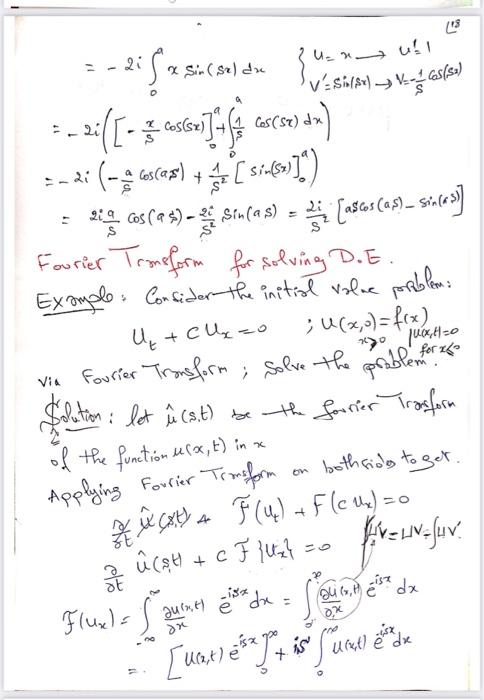 18
= - 2i ∫₀ᵃ x Sin(sx) dx { u = x → u' = 1
V' = Sin(sx) → V = -1/s Cos(sx)
= - 2i ([ - x/s Cos(sx)]₀ᵃ + ∫₀ᵃ 1/s Cos(sx) dx)
= - 2i (- a/s Cos(as) + 1/s² [ Sin(sx)]₀ᵃ)
= 2ia/s Cos(as) - 2i/s² Sin(as) = 2i/s² [as Cos(as) - Sin(as)]
Fourier Transform for solving D.E.
Example: Consider the initial value problem:
U_t + C U_x = 0 ; U(x,0) = f(x)
x≥0 | U(x,t) = 0
for x≤0
Via Fourier Transform ; Solve the problem.
Solution: let û(s,t) be the fourier Transform
of the function u(x,t) in x
Applying Fourier Transform on both sides to get.
∂/∂t û(s,t) + F(U_t) + F(C U_x) = 0
∂/∂t û(s,t) + C F{U_x} = 0 ∫u'v = uv - ∫uv'
F(U_x) = ∫_{-∞}^{∞} ∂u(x,t)/∂x e^{-isx} dx = ∫₀^∞ ∂u(x,t)/∂x e^{-isx} dx
= [u(x,t) e^{-isx}]₀^∞ + is ∫₀^∞ u(x,t) e^{-isx} dx